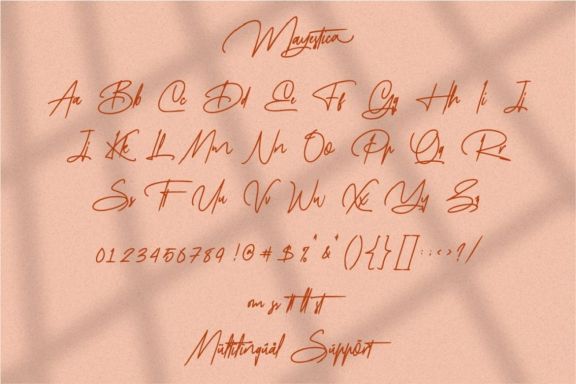 Mayestica
Aa Bb Cc Dd Ee Ff Gg Hh Ii Jj
Jj Kk Ll Mm Nn Oo Pp Qq Rr
Ss Tt Uu Vv Ww Xx Yy Zz
0123456789 !@#$%^&*(){}[]:;<>?/
om ss tt ll st
Mültilingüál Süppört